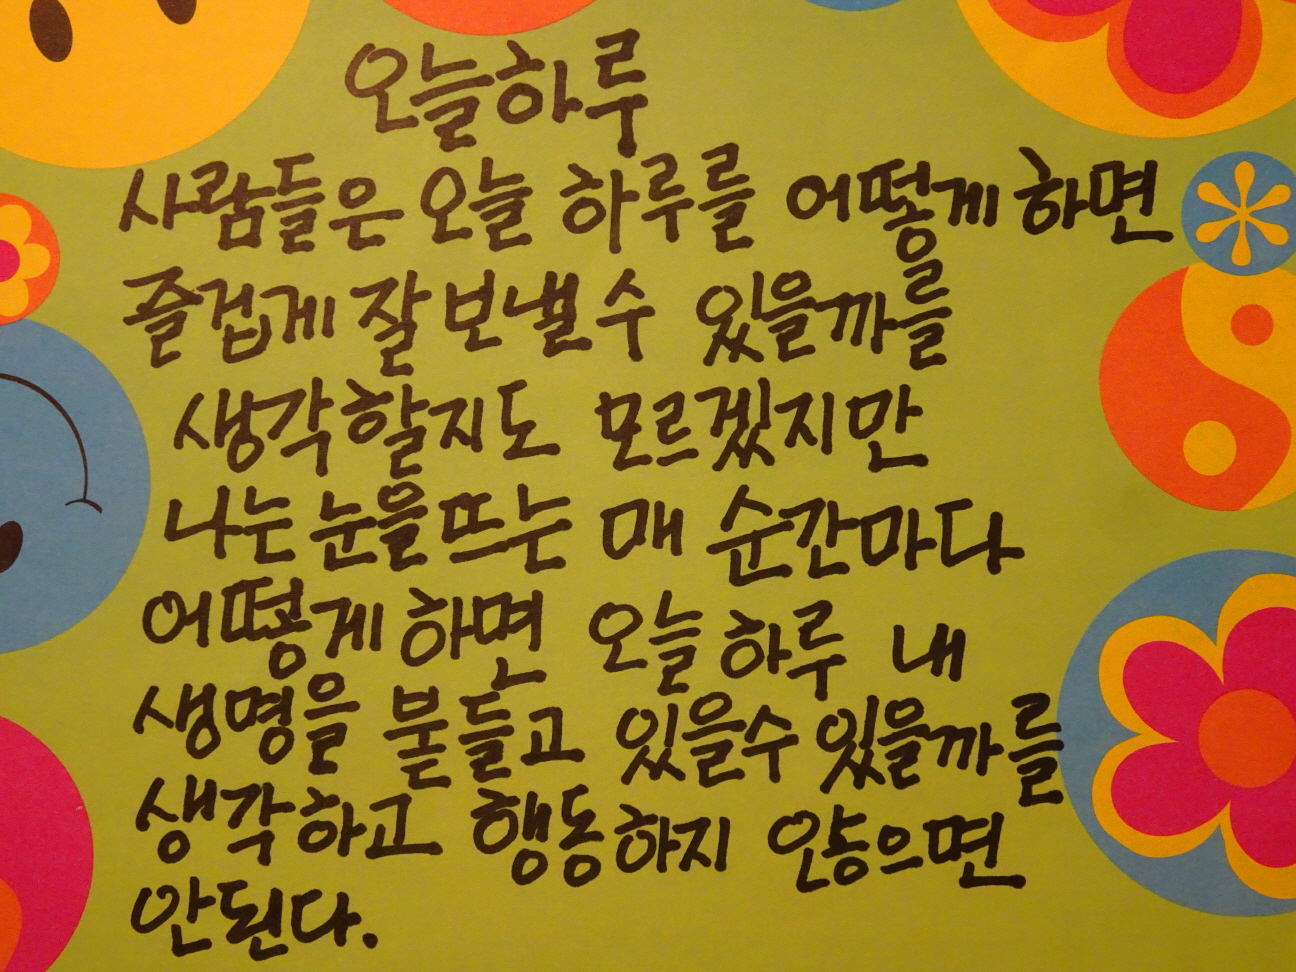 오늘하루
사람들은 오늘 하루를 어떻게 하면
즐겁게 잘 보낼 수 있을까를
생각할지도 모르겠지만
나는 눈을 뜨는 매 순간마다
어떻게 하면 오늘 하루 내
생명을 붙들고 있을수 있을까를
생각하고 행동하지 않으면
안된다.